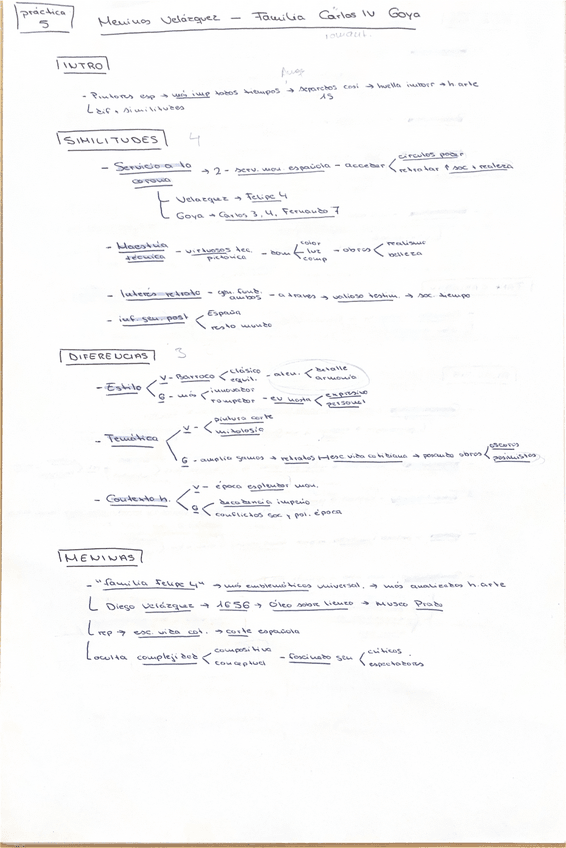 práctica 5
Meninas Velázquez — Familia Carlos IV Goya
INTRO
- Pintores esp → más imp todos tiempos → separados casi 1S → huella imborr → h arte
dif + similitudes
SIMILITUDES 4
- Servicio a la corona → 2 - serv. mon española - acceder círculos poder
retratar ↑ soc + realeza
Velázquez → Felipe 4
Goya → Carlos 3, 4, Fernando 7
- Maestría técnica - virtuosos tec. pictórica - dom color luz comp → obras realismo belleza
- Interés retrato - gén. fund. ambos - a través → valioso testim. → soc. tiempo
- inf gen. post España
resto mundo
DIFERENCIAS 3
- Estilo V - Barroco clásico equil. - aten. detalle armonía
G - más innovador rompedor - ev hasta expresivo personal
- Temática V - pintura corte
mitología
G - amplia gamas → retratos → esc vida cotidiana → pasando obras oscuras pesimistas
- Contexto h. V - época esplendor mon.
G decadencia imperio
conflictos soc y pol. época
MENINAS
- "familia Felipe 4" → más emblemáticos universal, → más analizados h. arte
Diego Velázquez → 1656 → Óleo sobre lienzo → Museo Prado
rep → esc. vida cot. → corte española
oculta complejidad compositiva conceptual - fascinado gen críticos espectadores